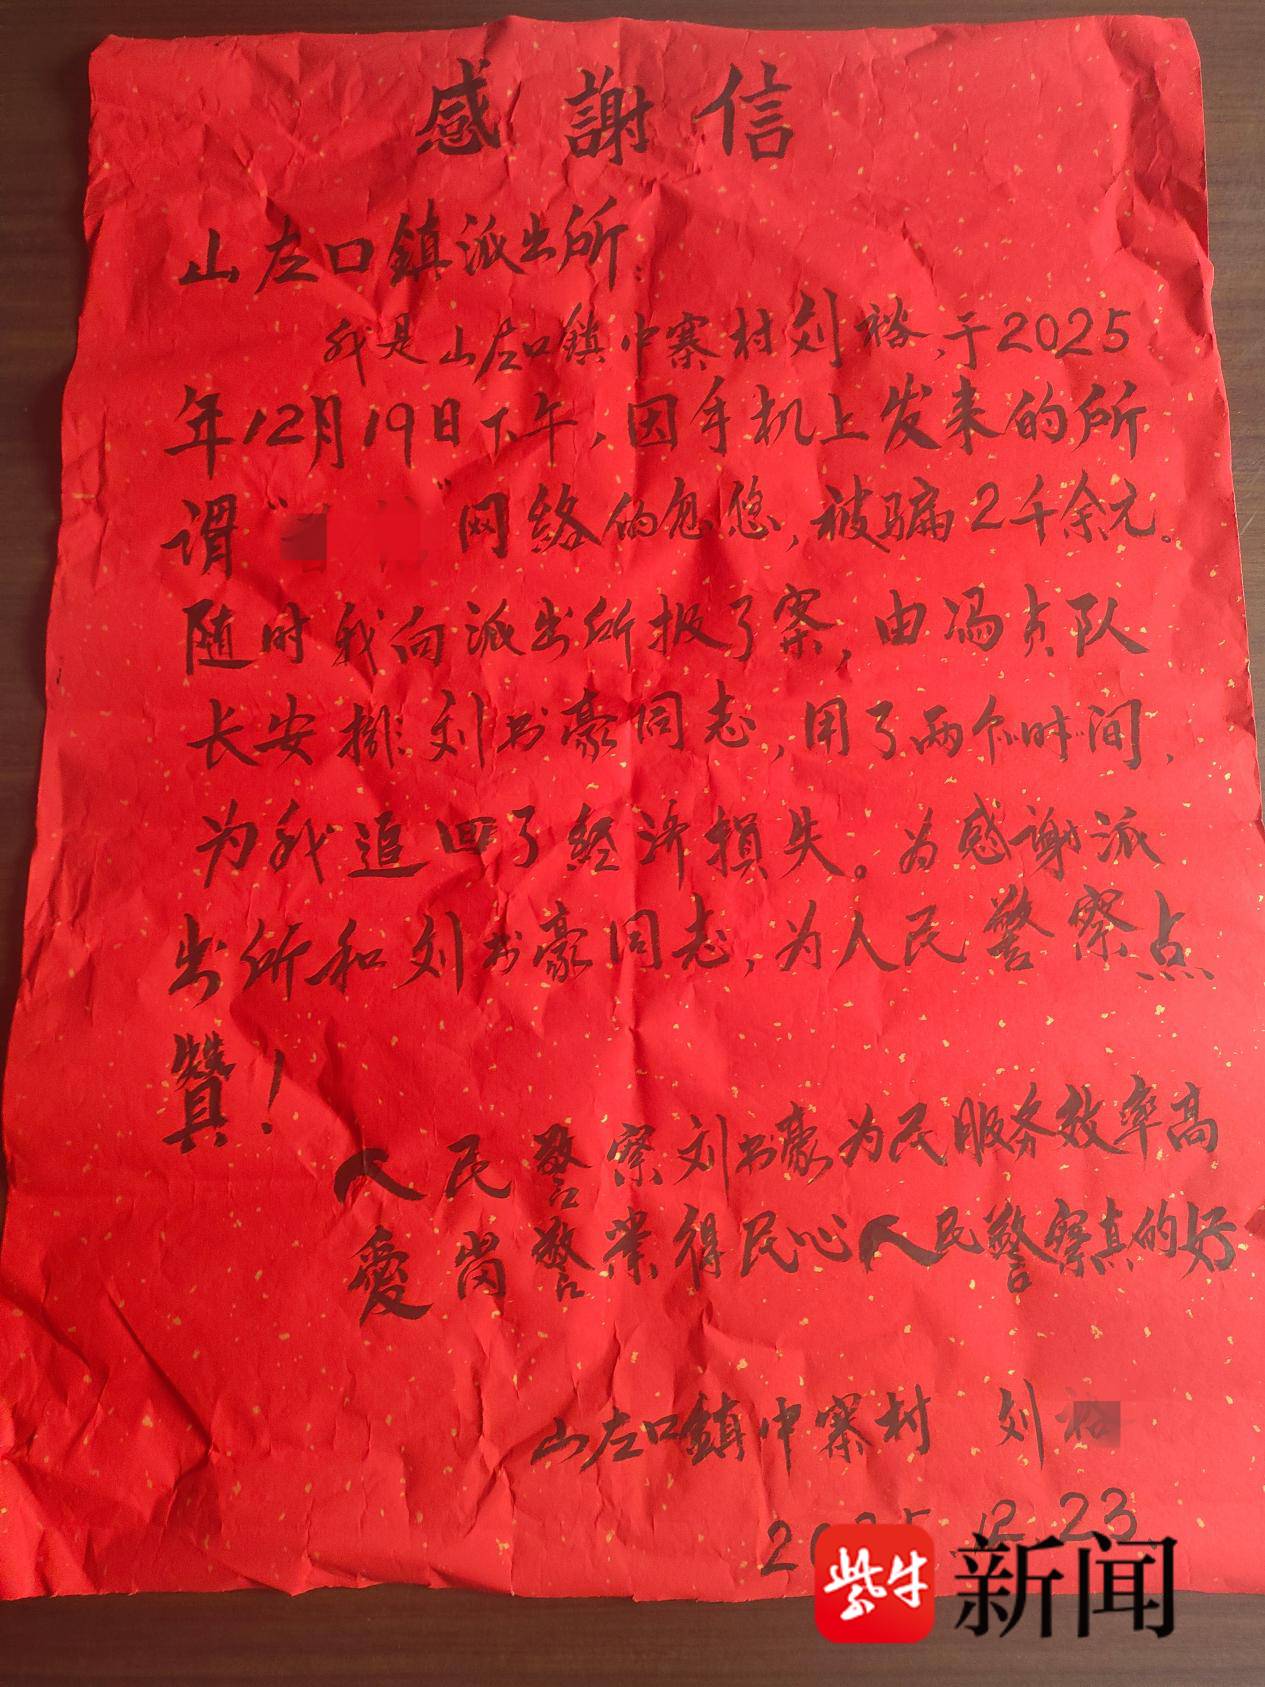 感謝信
山左口鎮派出所:
我是山左口鎮中寨村刘裕,于2025
年12月19日下午,因手机上发来的所
谓" "网络的忽悠,被骗2千余元。
随时我向派出所报了案,由冯贞队
长安排刘书豪同志,用了两个时间,
为我追回了经济損失。为感谢派
出所和刘书豪同志,为人民警察点
贊!
人民警察刘书豪为民服务效率高
愛岗警業得民心人民警察真的好
山左口鎮中寨村 刘
2025.12.23
紫牛新闻